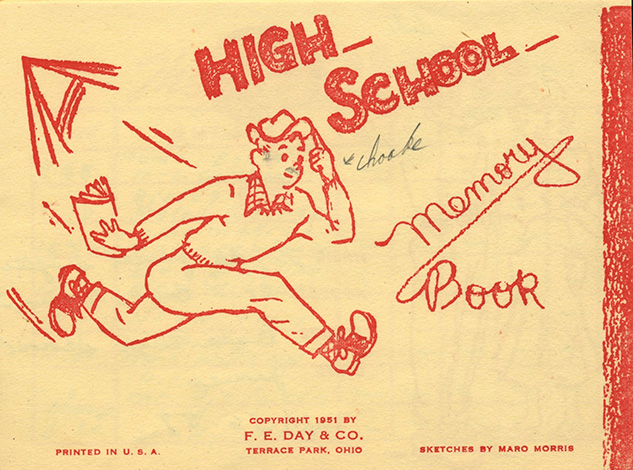 HIGH
SCHOOL
Memory
Book
COPYRIGHT 1951 BY
F. E. DAY & CO.
TERRACE PARK, OHIO
PRINTED IN U. S. A.
SKETCHES BY MARO MORRIS